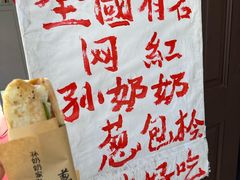 全國有名
网紅
孙奶奶
葱包桧
好吃
孙奶奶葱